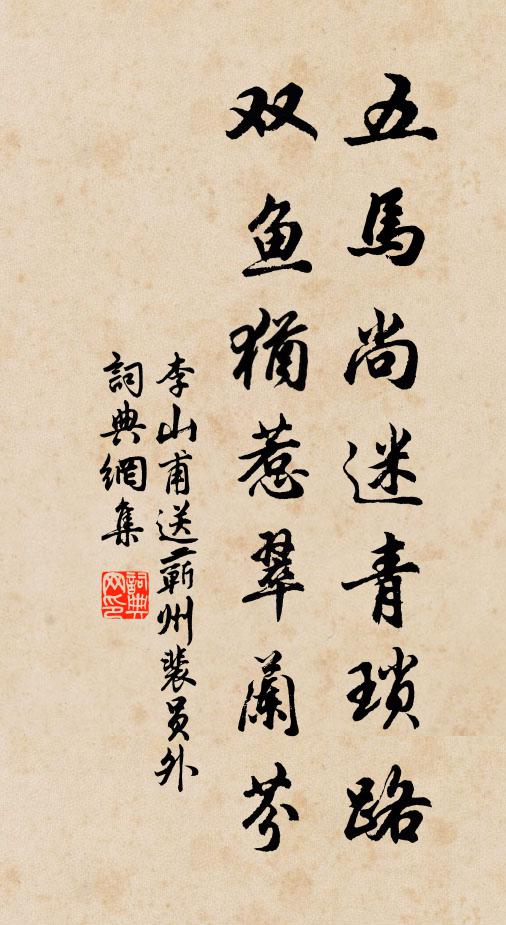 五馬尚迷青瑣路
双鱼猶惹翠蘭芬
李山甫送蘄州裴员外
詞典網集
詞典
网印